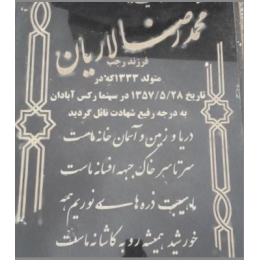 محمدرضا لاریان
فرزند رجب
متولد ۱۳۳۳ که در
تاریخ ۱۳۵۷/۵/۲۸ در سینما رکس آبادان
به درجه رفیع شهادت نائل گردید
دریا و زمین و آسمان خانه ماست
سرتاسر خاک جبهه افسانه ماست
ما هیبت ذره های نوریم همه
خورشید همیشه رو به کاشانه ماست